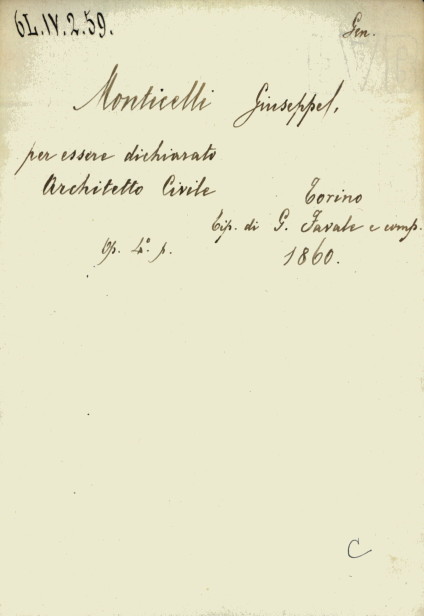 6L.IV.2.59.
Gen.
Monticelli Giuseppe,
per essere dichiarato
Architetto Civile
Torino
Tip. di G. Favale e comp.
Op. 4º. p.
1860.
C